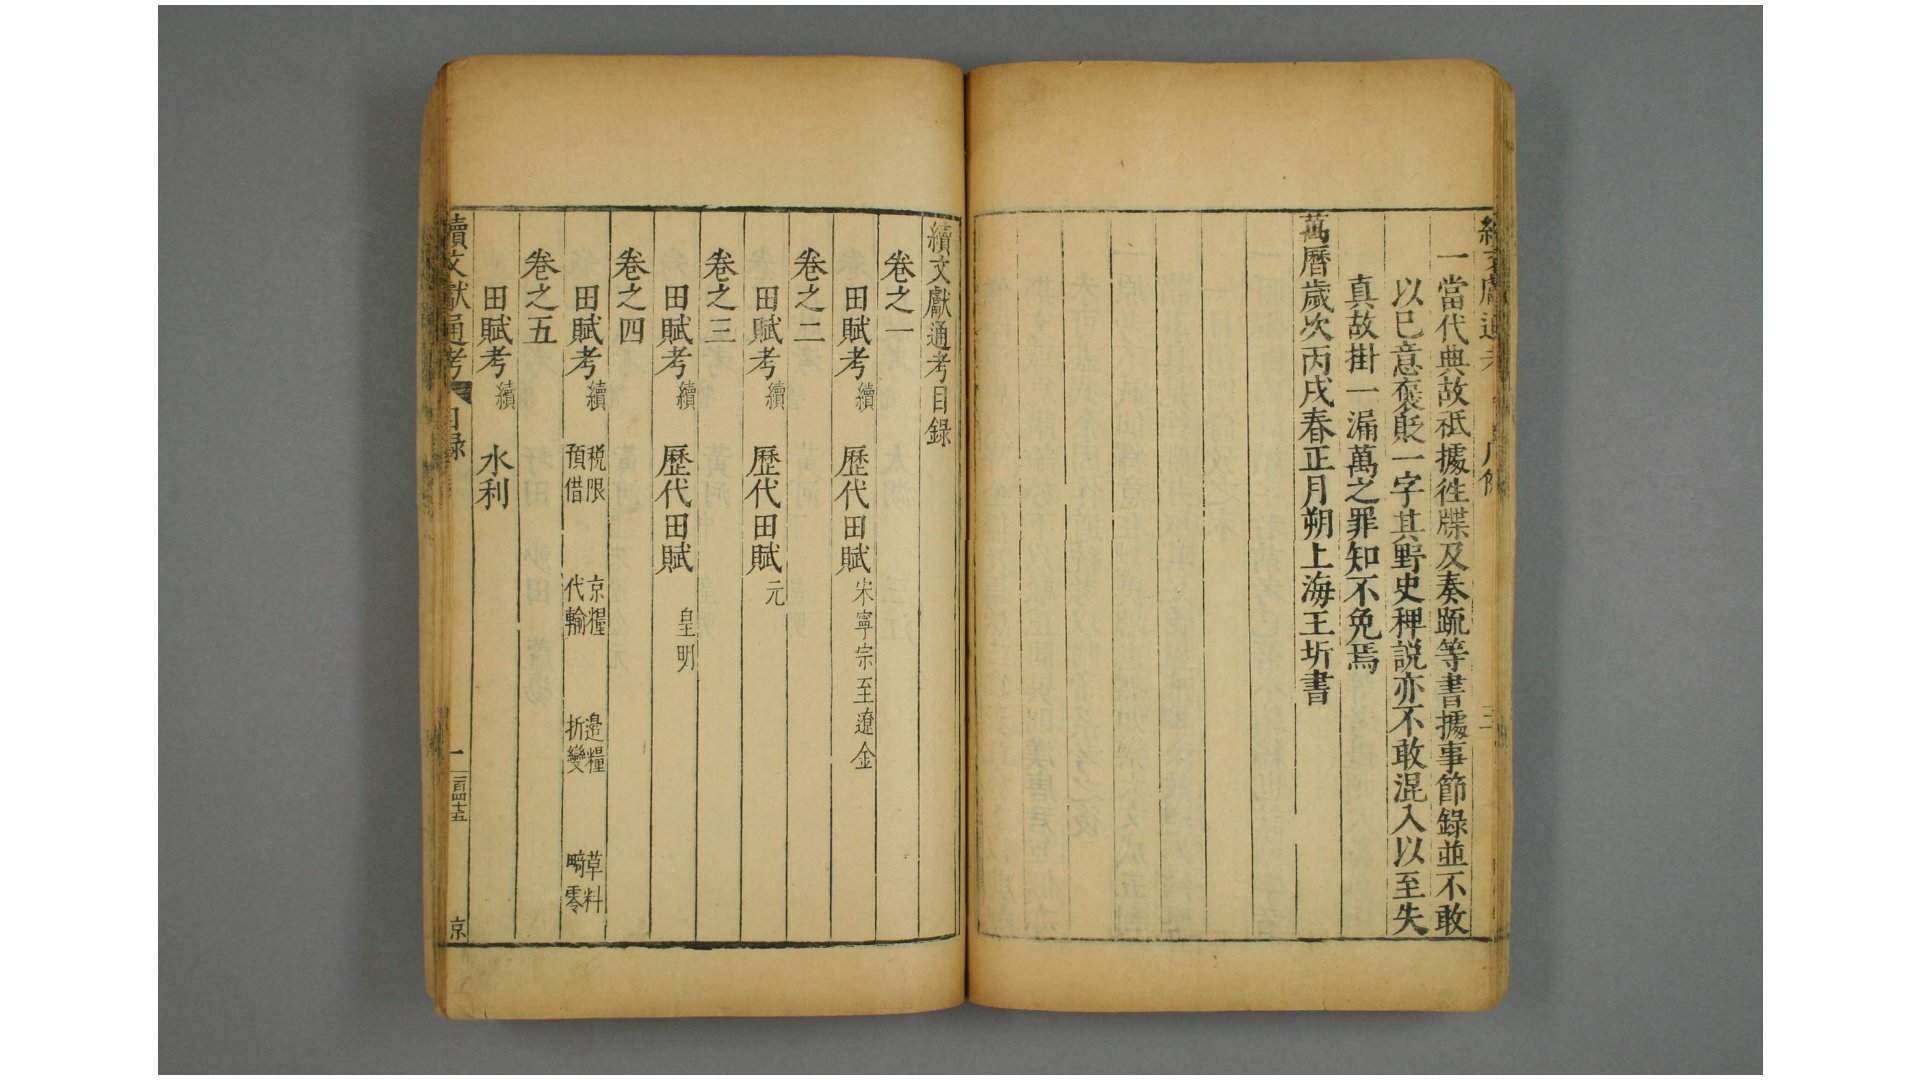 一當代典故祗據徃牒及奏䟽等書據事節錄並不敢
以已意褒貶一字其野史稗説亦不敢混入以至失
真故掛一漏萬之罪知不免焉
萬曆歲次丙戌春正月朔上海王圻書
續文獻通考目錄
卷之一
田賦考續 歷代田賦 宋寧宗至遼金
卷之二
田賦考續 歷代田賦 元
卷之三
田賦考續 歷代田賦 皇明
卷之四
田賦考續 税限 預借 京糧 代輸 邊糧 折變 草料 畸零
卷之五
田賦考續 水利
續文獻通考 目録 一 京